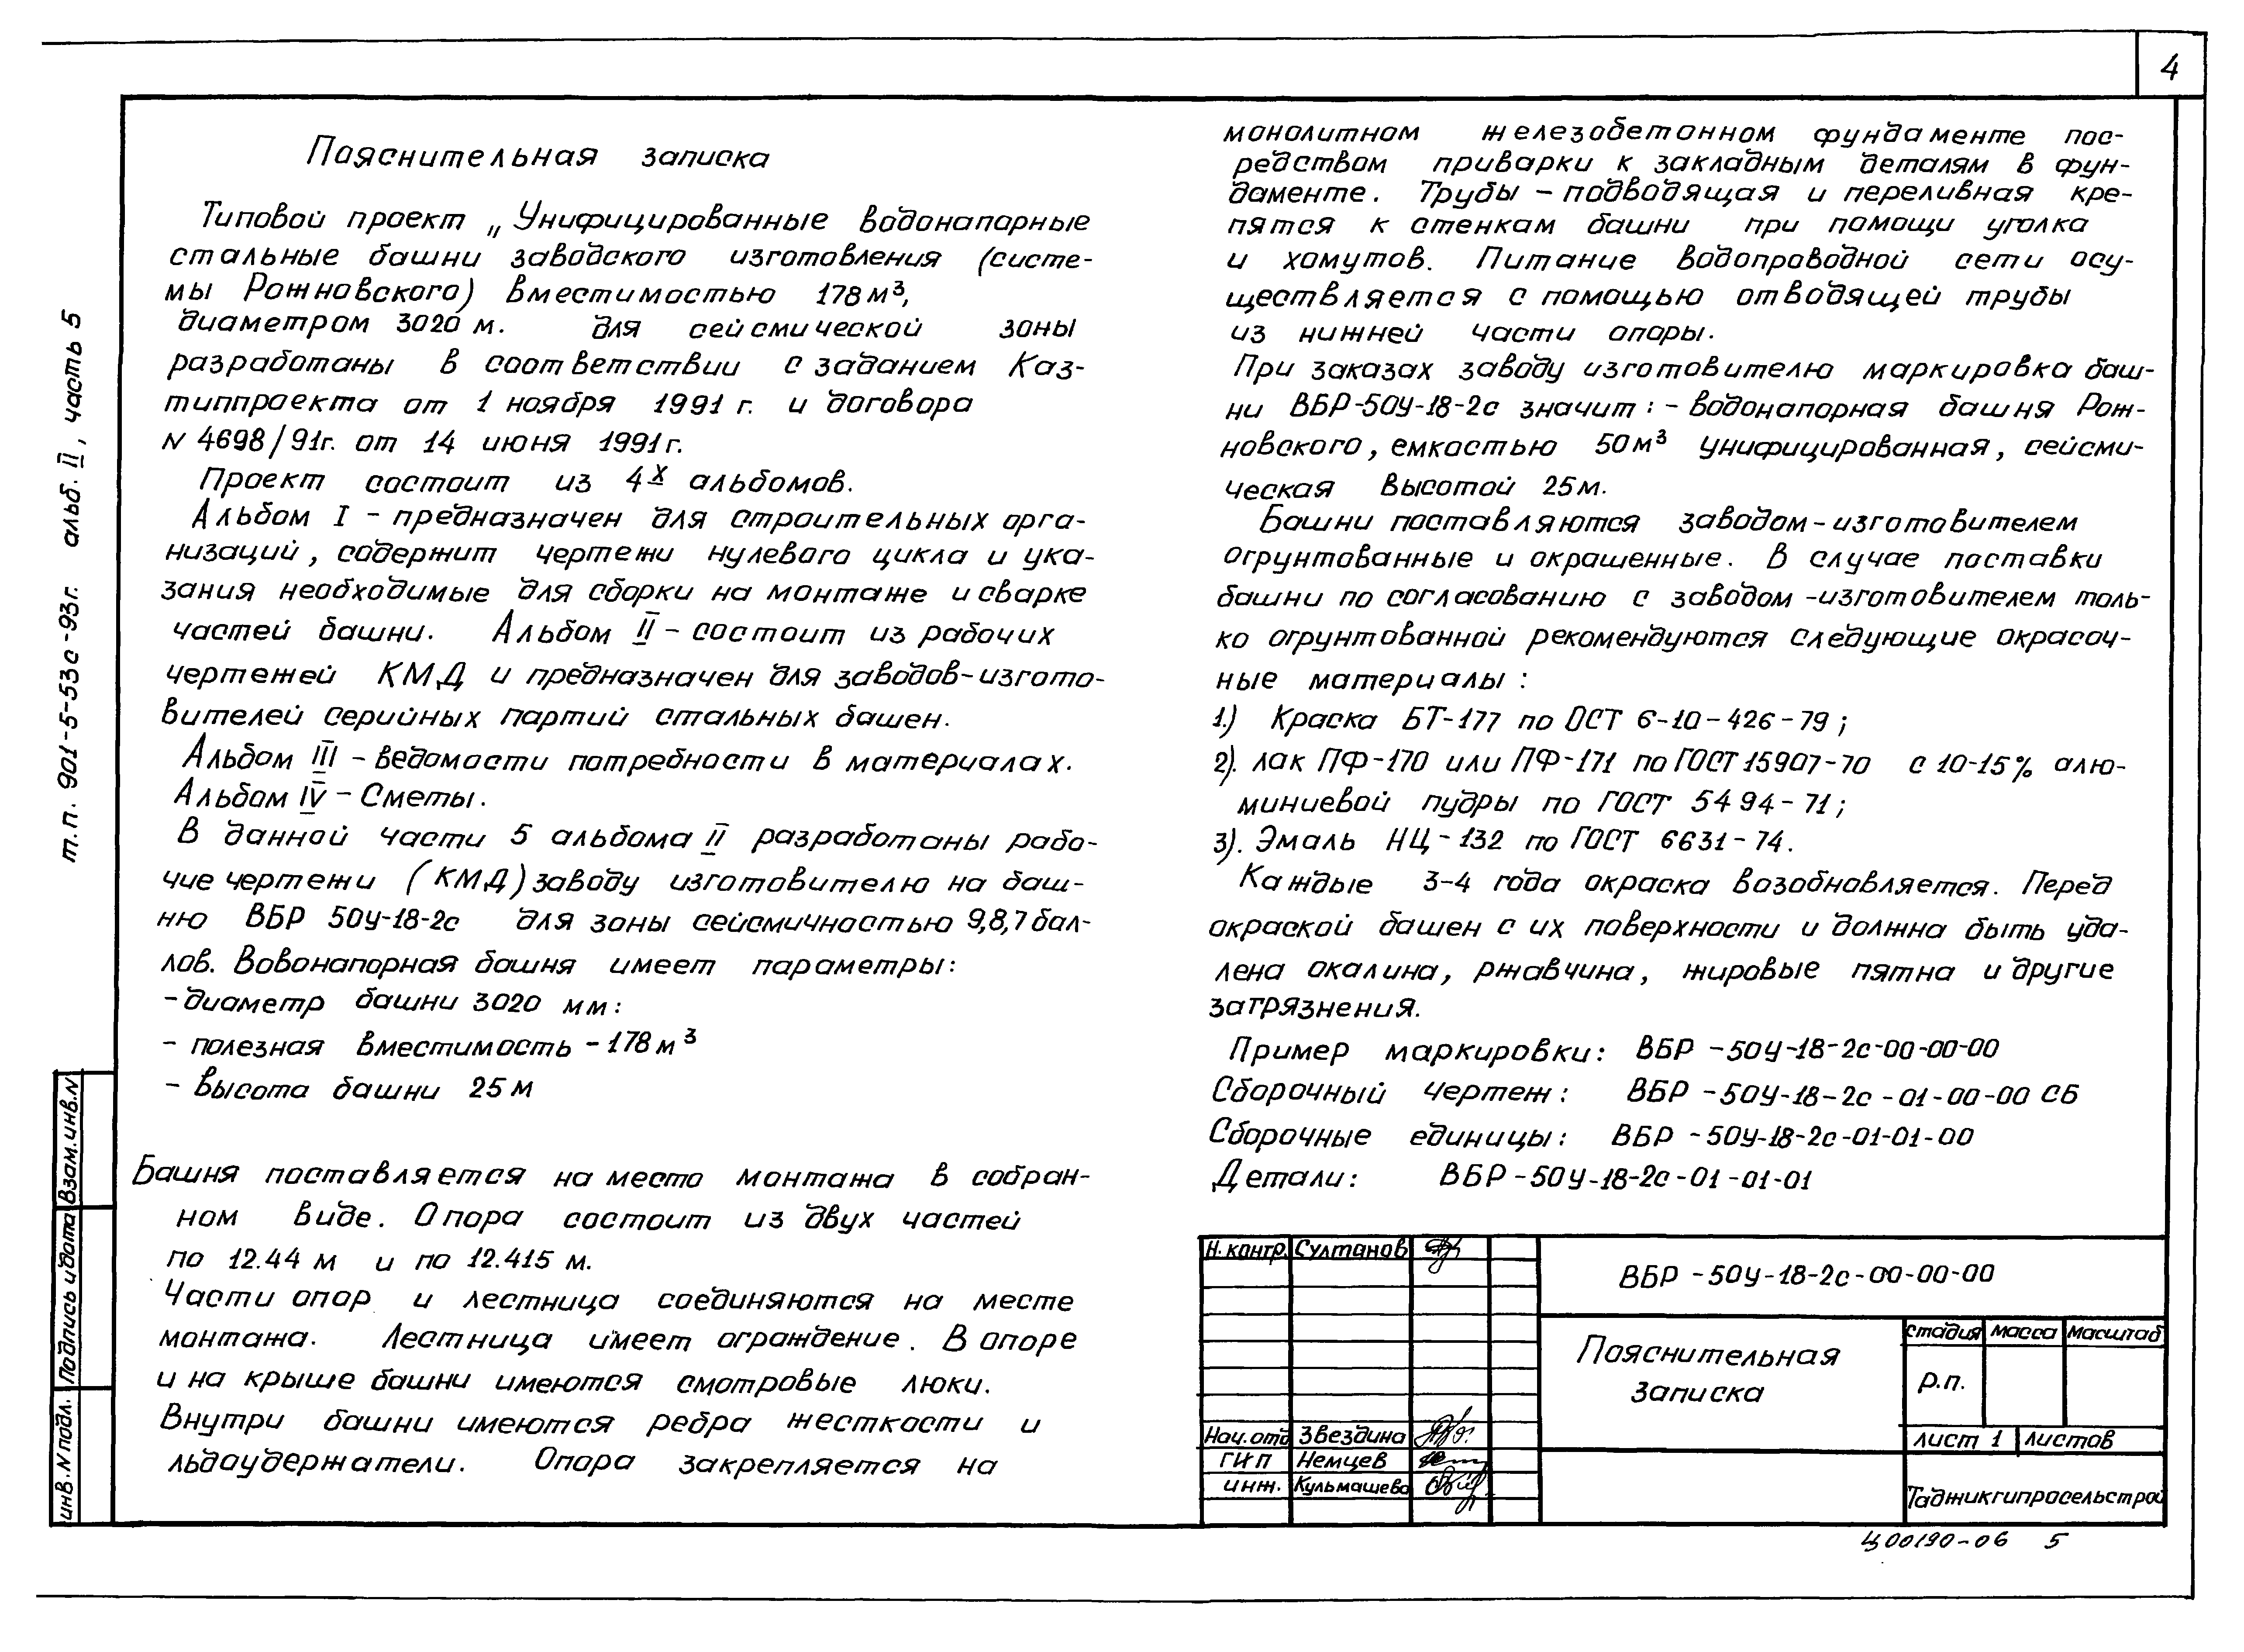 4
Пояснительная записка
Типовой проект „Унифицированные водонапорные
стальные башни заводского изготовления (систе-
мы Рожновского) вместимостью 178 м³,
диаметром 3020 м. для сейсмической зоны
разработаны в соответствии с заданием Каз-
типпроекта от 1 ноября 1991 г. и договора
N 4698/91г. от 14 июня 1991 г.
Проект состоит из 4х альбомов.
Альбом I - предназначен для строительных орга-
низаций, содержит чертежи нулевого цикла и ука-
зания необходимые для сборки на монтаже и сварке
частей башни. Альбом II - состоит из рабочих
чертежей КМД и предназначен для заводов-изгото-
вителей серийных партий стальных башен.
Альбом III - ведомости потребности в материалах.
Альбом IV - Сметы.
В данной части 5 альбома II разработаны рабо-
чие чертежи (КМД) заводу изготовителю на баш-
ню ВБР 50У-18-2с для зоны сейсмичностью 9,8,7 бал-
лов. Вовонапорная башня имеет параметры:
- диаметр башни 3020 мм:
- полезная вместимость - 178 м³
- высота башни 25 м
Башня поставляется на место монтажа в собран-
ном виде. Опора состоит из двух частей
по 12.44 м и по 12.415 м.
Части опор и лестница соединяются на месте
монтажа. Лестница имеет ограждение. В опоре
и на крыше башни имеются смотровые люки.
Внутри башни имеются ребра жесткости и
льдоудержатели. Опора закрепляется на
монолитном железобетонном фундаменте пос-
редством приварки к закладным деталям в фун-
даменте. Трубы - подводящая и переливная кре-
пятся к стенкам башни при помощи уголка
и хомутов. Питание водопроводной сети осу-
ществляется с помощью отводящей трубы
из нижней части опоры.
При заказах заводу изготовителю маркировка баш-
ни ВБР-50У-18-2с значит: - водонапорная башня Рож-
новского, емкостью 50 м³ унифицированная, сейсми-
ческая высотой 25 м.
Башни поставляются заводом-изготовителем
огрунтованные и окрашенные. В случае поставки
башни по согласованию с заводом-изготовителем толь-
ко огрунтованной рекомендуются следующие окрасоч-
ные материалы:
1.) Краска БТ-177 по ОСТ 6-10-426-79;
2). лак ПФ-170 или ПФ-171 по ГОСТ 15907-70 с 10-15% алю-
миниевой пудры по ГОСТ 5494-71;
3). Эмаль НЦ-132 по ГОСТ 6631-74.
Каждые 3-4 года окраска возобновляется. Перед
окраской башен с их поверхности и должна быть уда-
лена окалина, ржавчина, жировые пятна и другие
загрязнения.
Пример маркировки: ВБР-50У-18-2с-00-00-00
Сборочный чертеж: ВБР-50У-18-2с-01-00-00 СБ
Сборочные единицы: ВБР-50У-18-2с-01-01-00
Детали: ВБР-50У-18-2с-01-01-01
т.п. 901-5-53с-93г. альб. II, часть 5
Взам.инв.N
Подпись и дата
инв.N подл.
Н.контр. Султанов
Нач.отд Звездина
ГИП Немцев
инж. Кульмашева
ВБР-50У-18-2с-00-00-00
Пояснительная
записка
стадия масса масштаб
р.п.
лист 1 листов
Таджикгипросельстрой
Ц00190-06 5